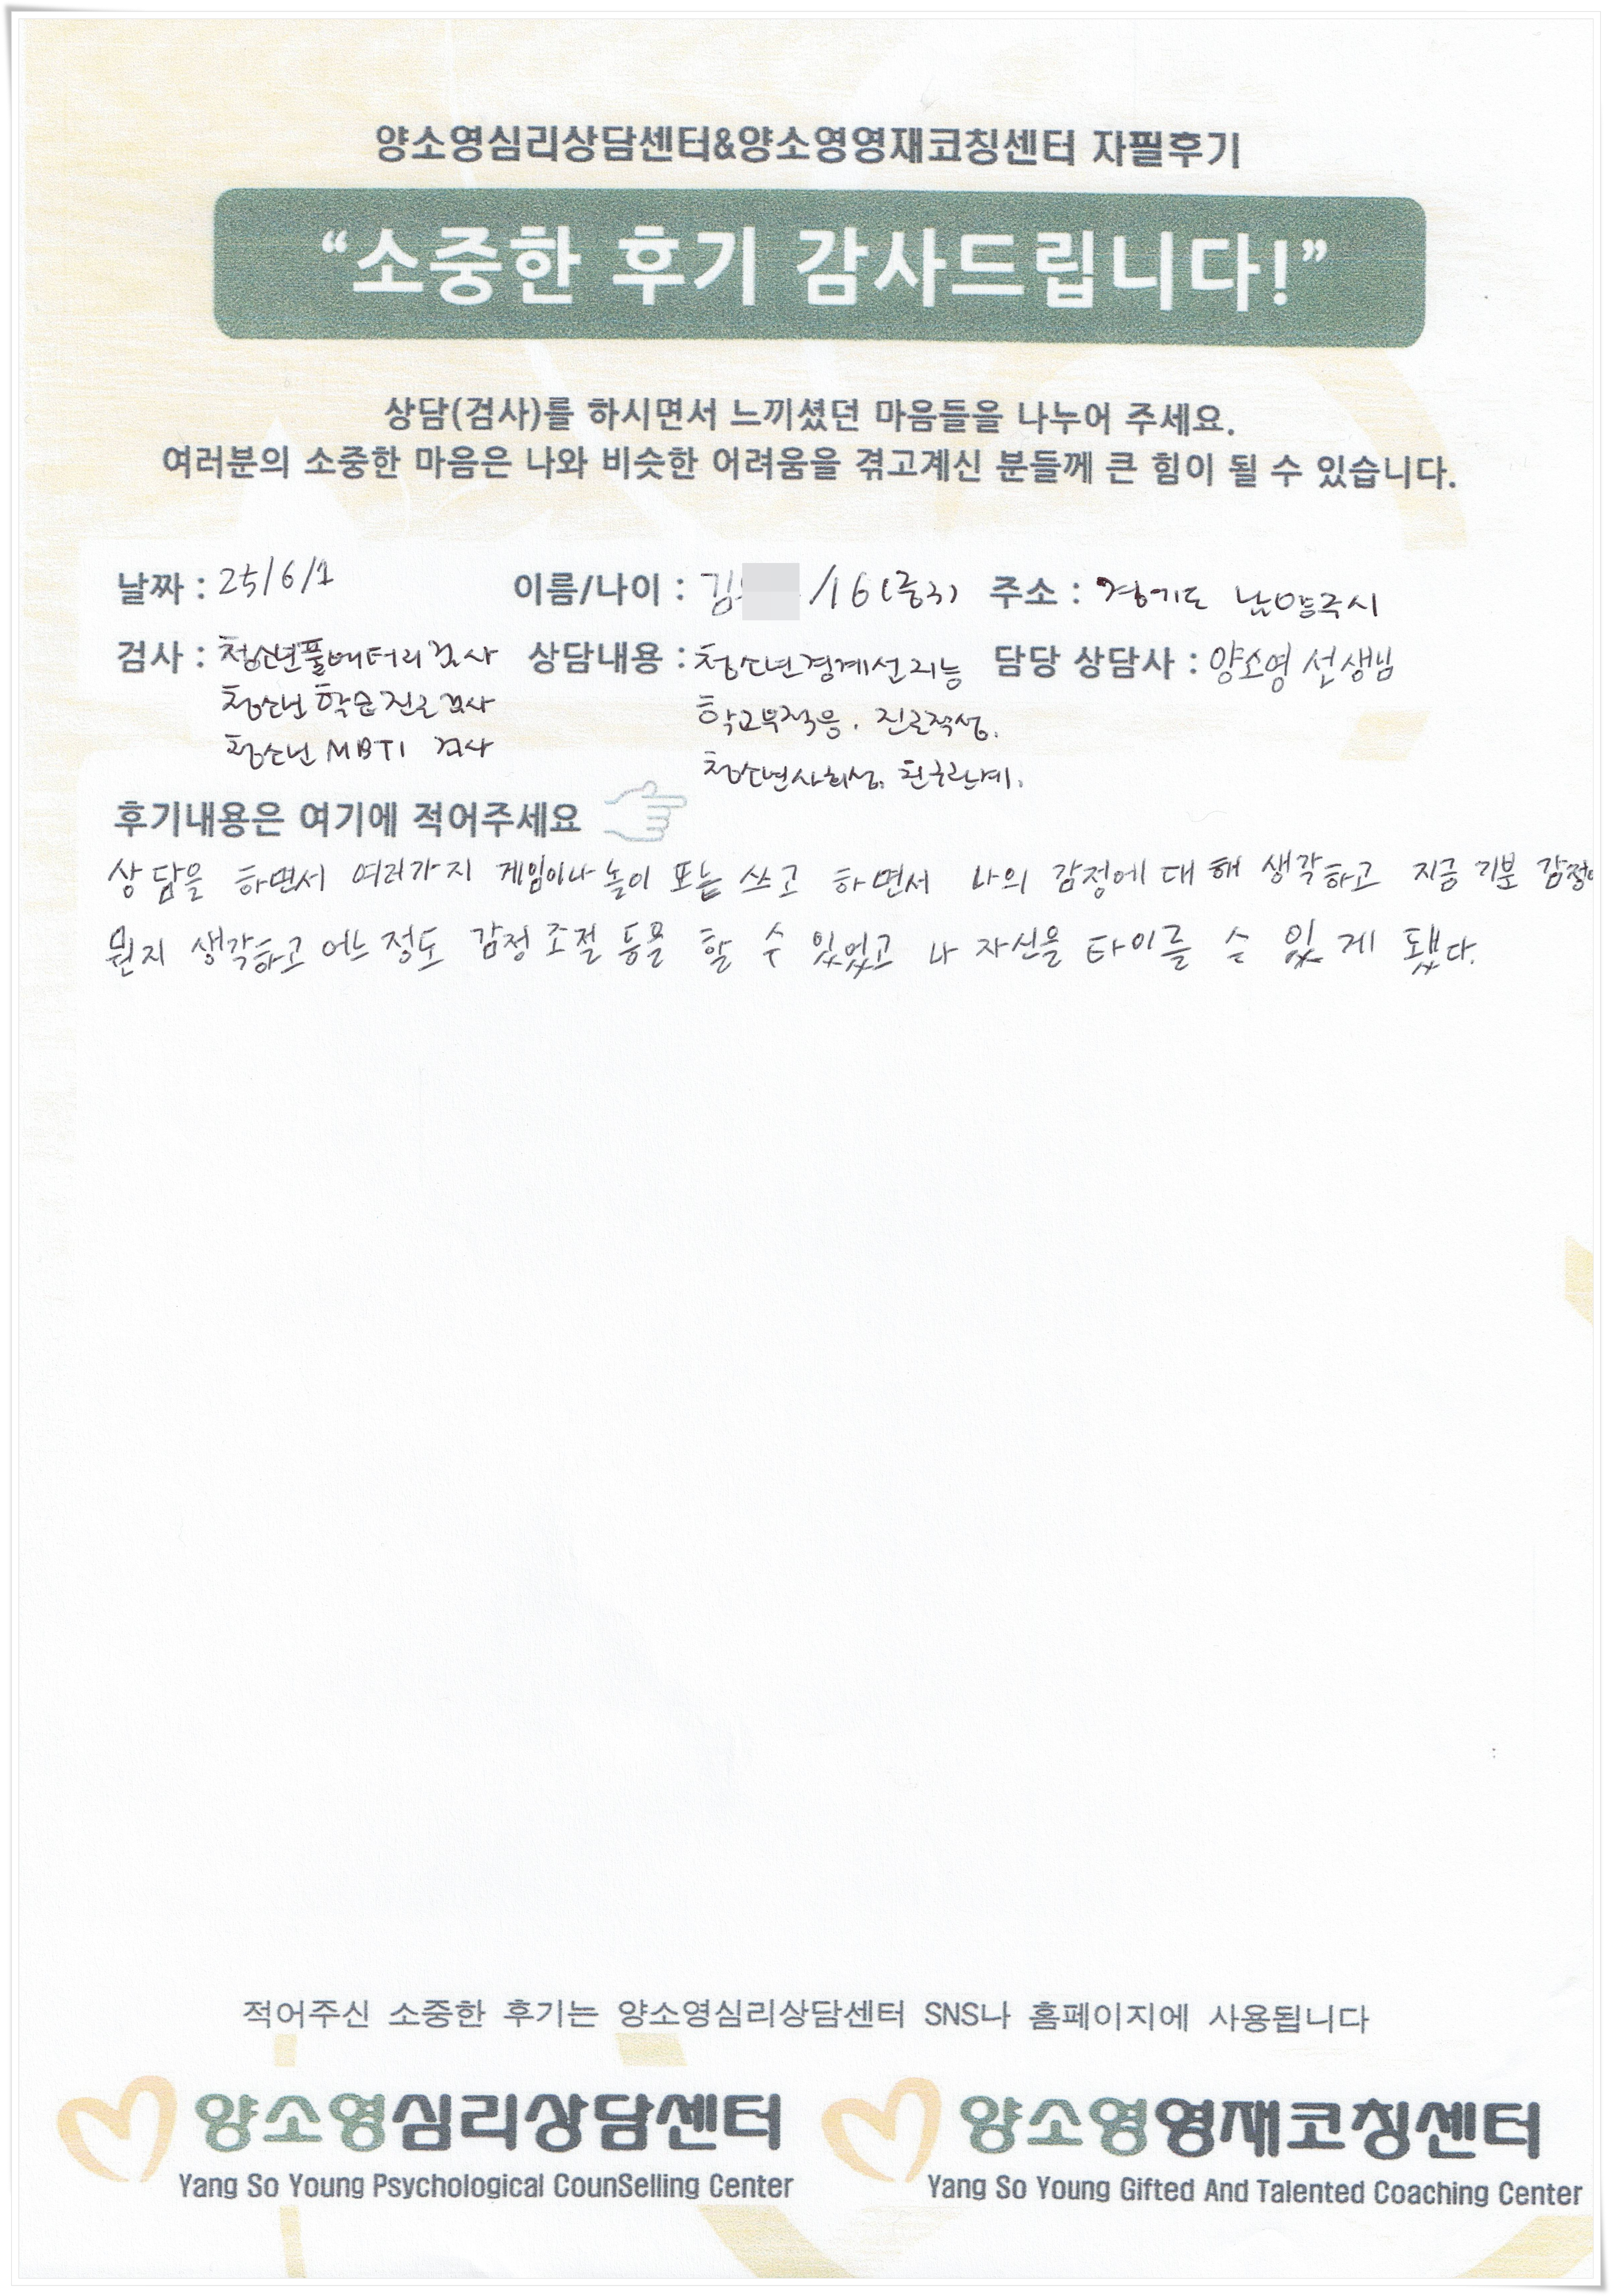 양소영심리상담센터&양소영영재코칭센터 자필후기
“소중한 후기 감사드립니다!”
상담(검사)를 하시면서 느끼셨던 마음들을 나누어 주세요.
여러분의 소중한 마음은 나와 비슷한 어려움을 겪고계신 분들께 큰 힘이 될 수 있습니다.
날짜 : 25/6/1 이름/나이 : 김 /16(중3) 주소 : 경기도 남양주시
검사 : 청소년풀배터리검사 상담내용 : 청소년경계선지능 담당 상담사 : 양소영 선생님
청소년 학습진로검사 학교부적응. 진로적성.
청소년 MBTI 검사 청소년사회성. 친구관계.
후기내용은 여기에 적어주세요
상담을 하면서 여러가지 게임이나 놀이 또는 쓰고 하면서 나의 감정에 대해 생각하고 지금 기분 감정이
뭔지 생각하고 어느정도 감정조절 등을 할 수 있었고 나 자신을 타이를 수 있게 됐다.
적어주신 소중한 후기는 양소영심리상담센터 SNS나 홈페이지에 사용됩니다
양소영심리상담센터 양소영영재코칭센터
Yang So Young Psychological CounSelling Center Yang So Young Gifted And Talented Coaching Center